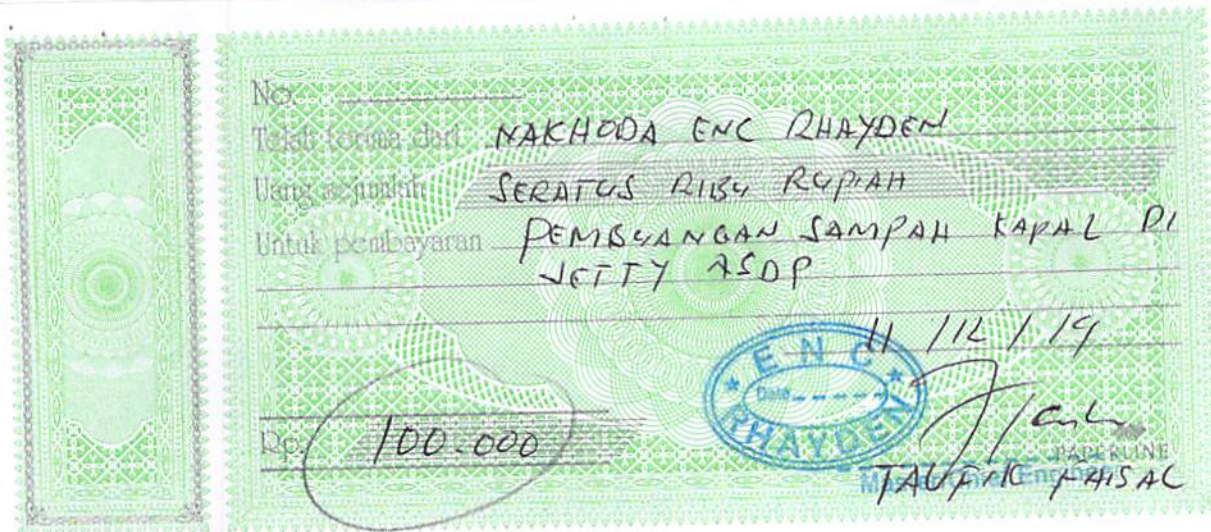 No.
Telah terima dari NAKHODA ENC RHAYDEN
Uang sejumlah SERATUS RIBU RUPIAH
Untuk pembayaran PEMBUANGAN SAMPAH KAPAL DI
JETTY ASDP
11 / 12 / 19
ENC
Date
RHAYDEN
Rp. 100.000
PAPERLINE
Master/Chief Engineer
TAUFIK FAISAL